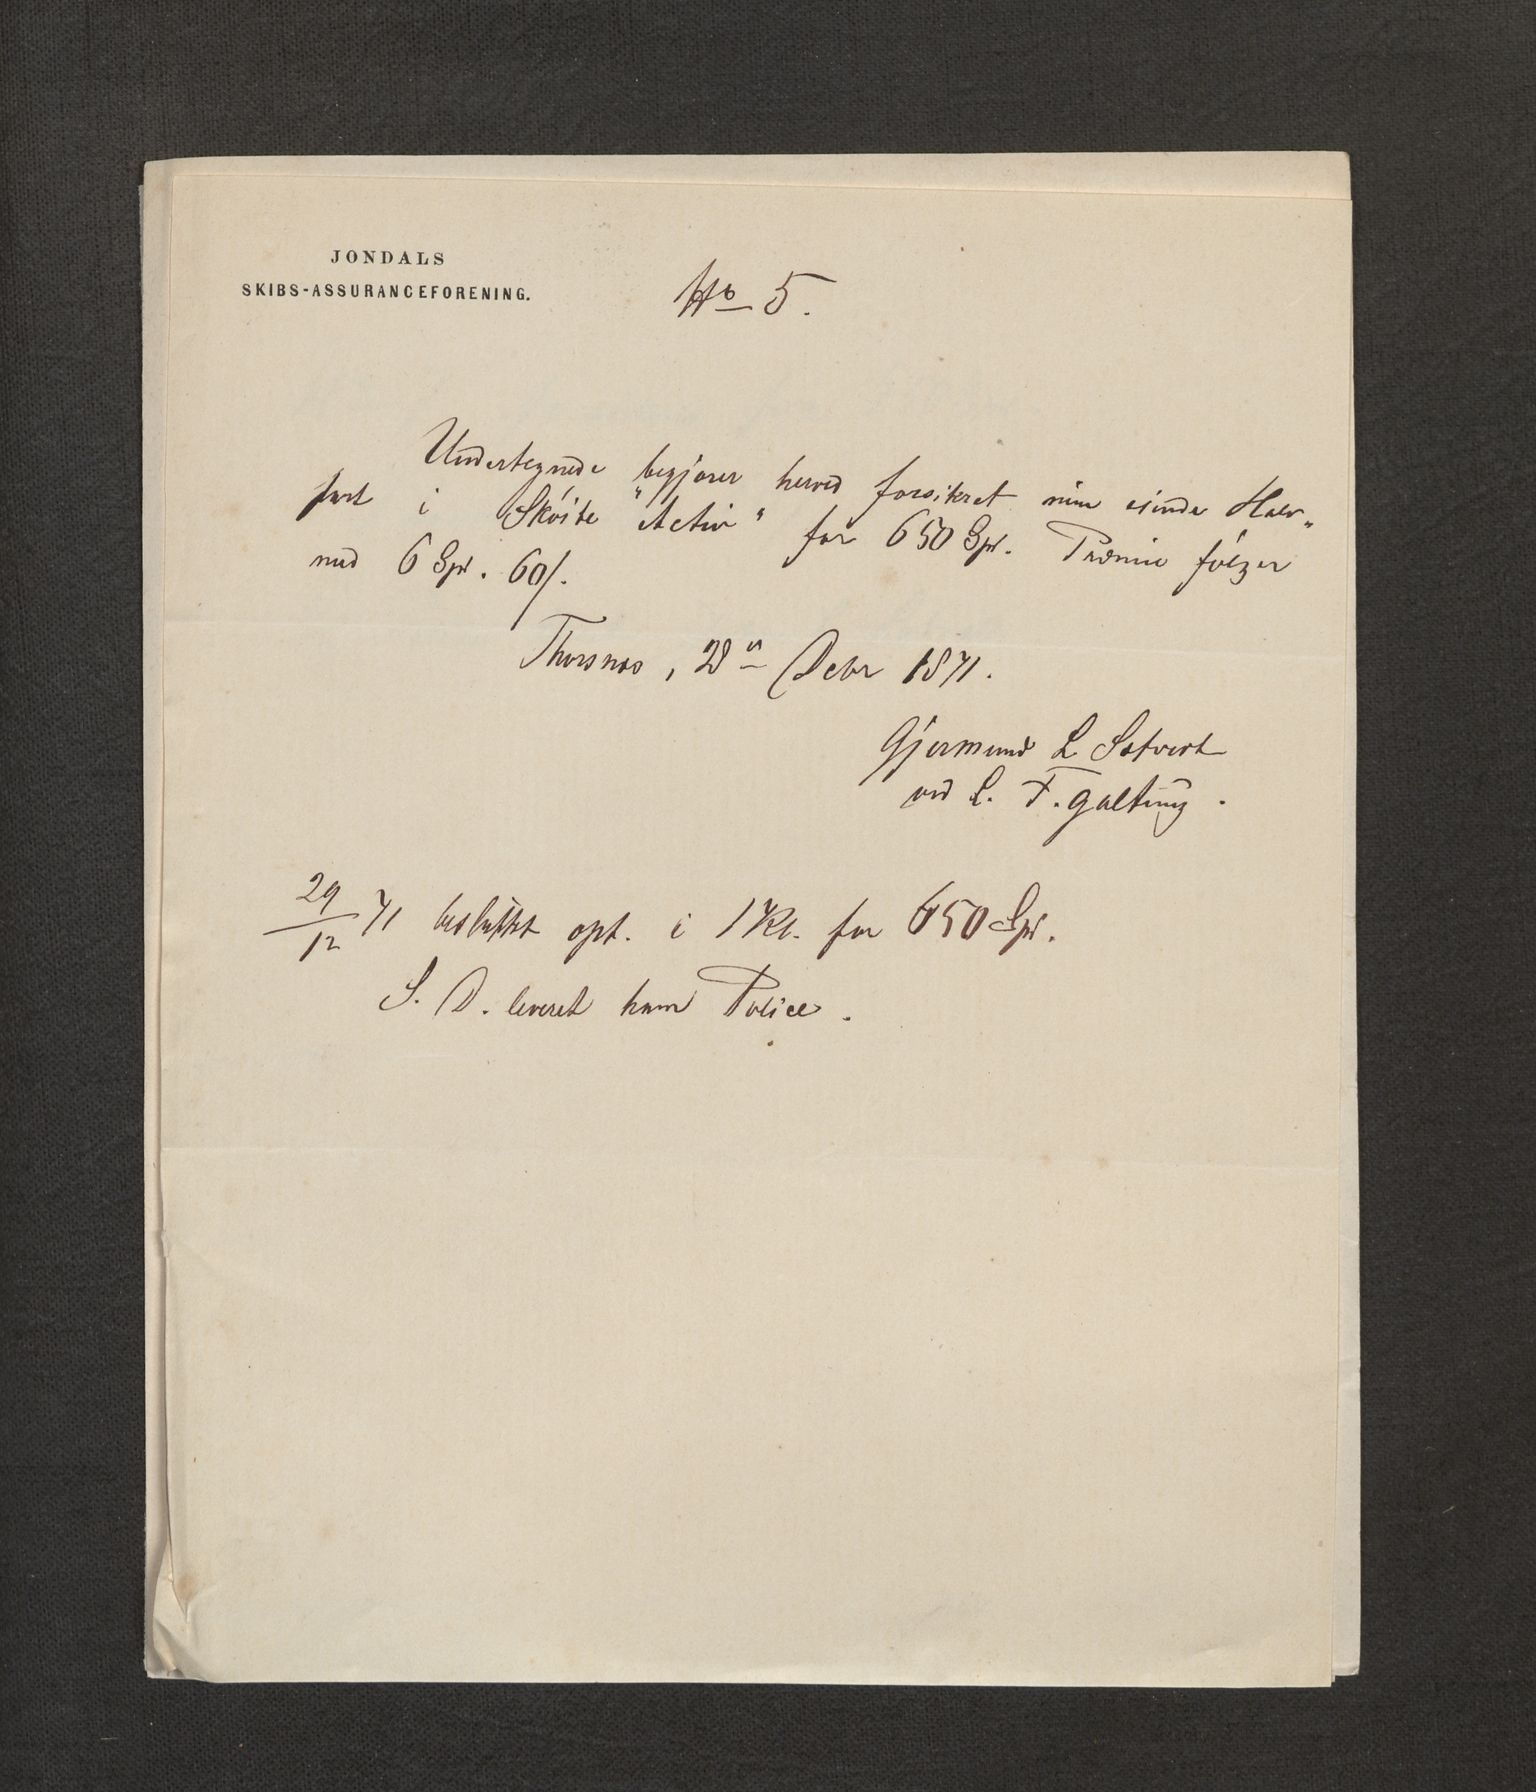 JONDALS
SKIBS-ASSURANCEFORENING.
No 5.
Undertegnede begjærer herved forsikret min eiende Halv„
part i Skøite "Activ" for 650 Spd. Præmie følger
med 6 Spd. 60/.
Thorsnæs, 28de Debr 1871.
Gjermund L Satveit
ved L. F. Galtung.
29/12 71 besluttet opt. i 1 Kl. for 650 Spd.
S. D. leveret ham Police.